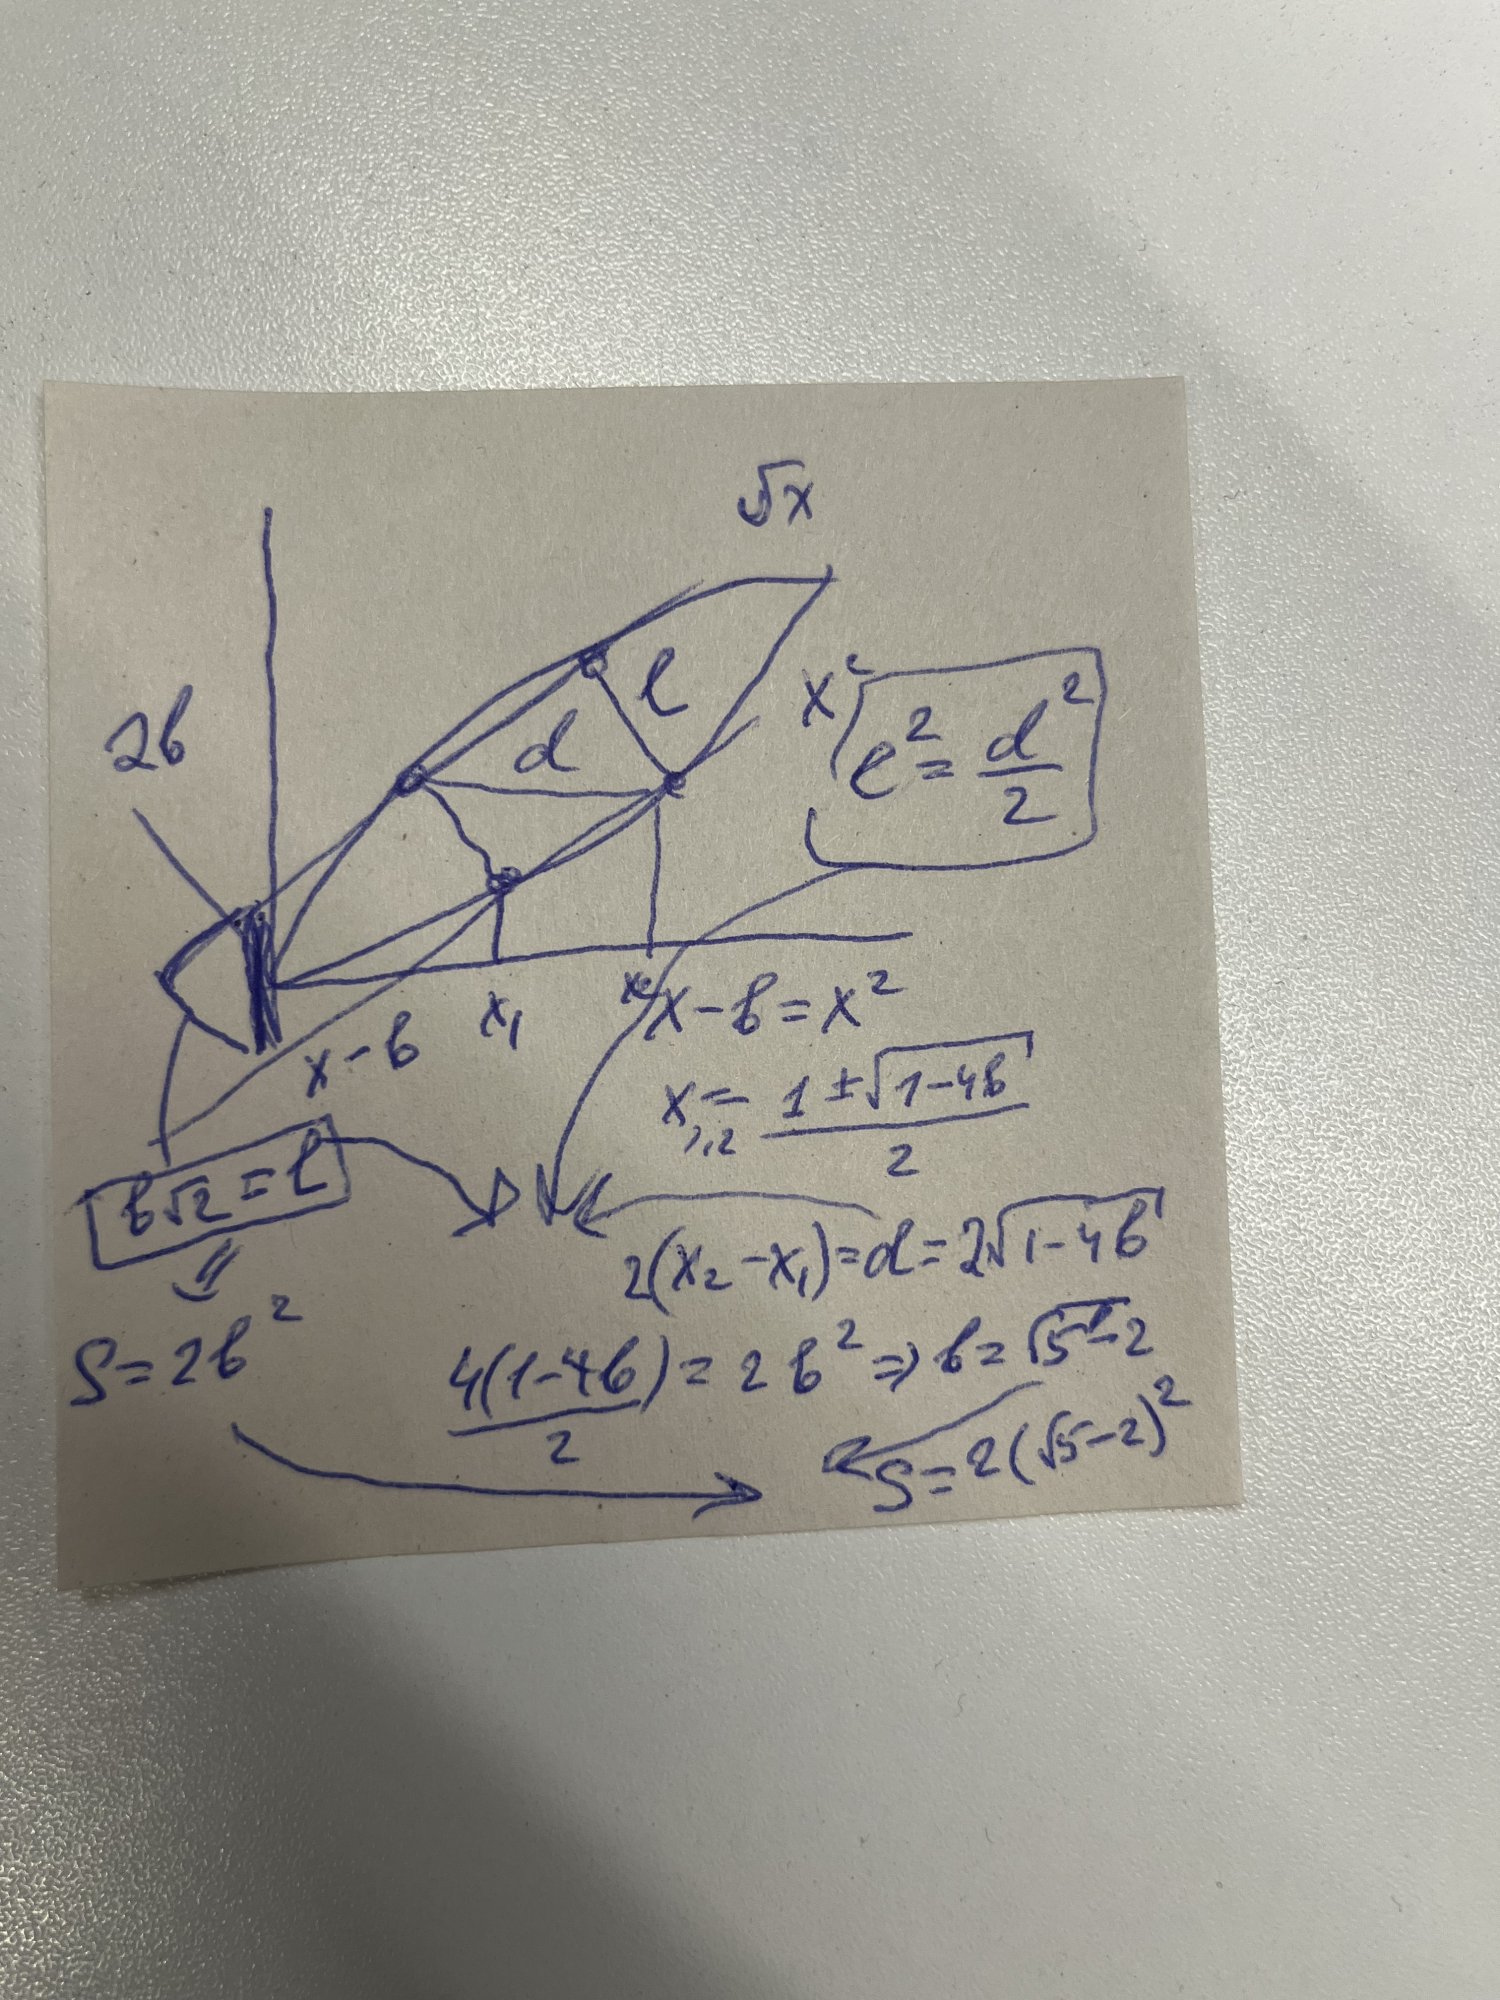 √x
2b
l
d
x²
l² = d²/2
x₁
x₂
x-b
x-b=x²
x₁,₂ = (1±√(1-4b))/2
b√2 = l
2(x₂-x₁)=d=2√(1-4b)
S=2b²
4(1-4b)/2 = 2b² ⇒ b=√5-2
S=2(√5-2)²